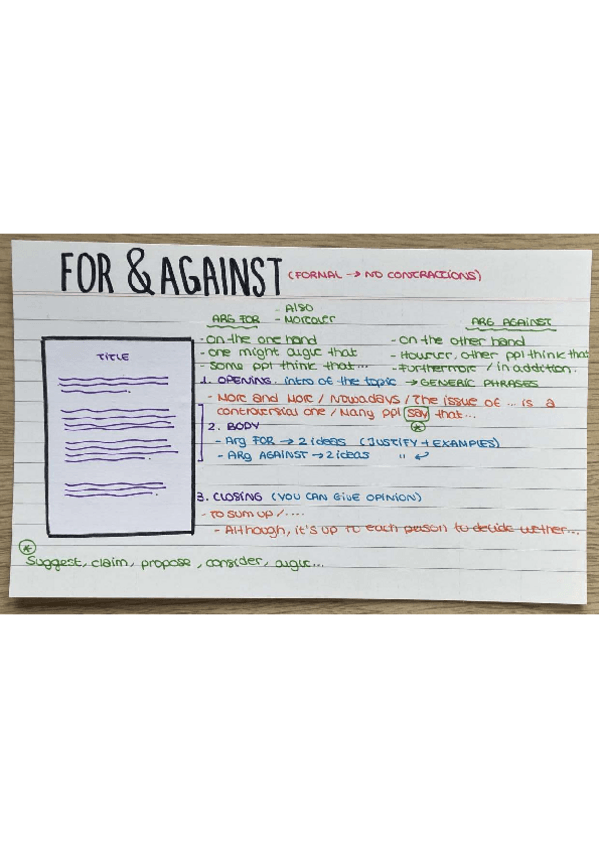 FOR & AGAINST (FORMAL → NO CONTRACTIONS)
- Also
ARG FOR - Moreover ARG AGAINST
- on the one hand - on the other hand
- one might argue that - However, other ppl think that
- Some ppl think that... - Furthermore / in addition.
TITLE
1. OPENING. intro of the topic → GENERIC PHRASES
- More and More / Nowadays / The issue of ... is a
controversial one / Many ppl say that...
2. BODY
- Arg FOR → 2 ideas (JUSTIFY + EXAMPLES)
- ARg AGAINST → 2 ideas "
3. CLOSING (YOU CAN GIVE OPINION)
- To sum up /....
- Although, it's up to each person to decide wether...
* Suggest, claim, propose, consider, argue...